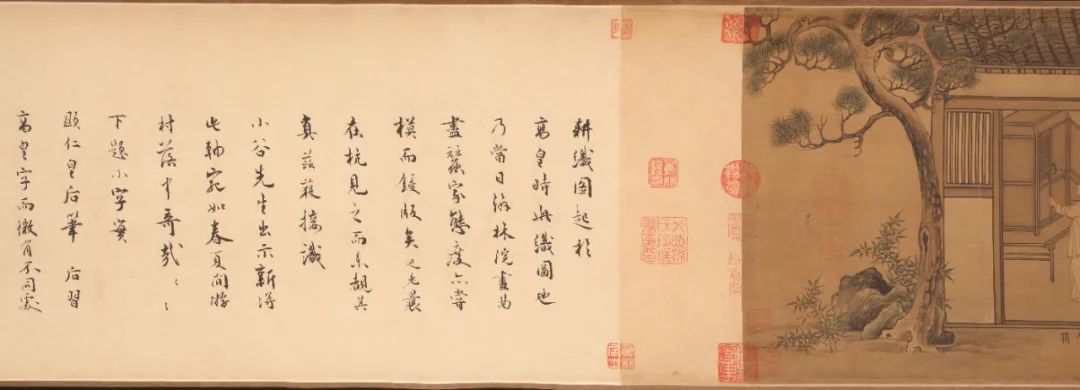 耕織圖起於
高皇時此織圖也
乃當日翰林院畫曲
盡蠶家態度亦嘗
模而鋟版矣元老曩
在杭見之而未覩其
真茲獲接識
小谷先生出示新得
此軸宛如春夏間游
村落中奇哉〻〻
下題小字實
顯仁皇后筆 后習
高皇字而微有不同處